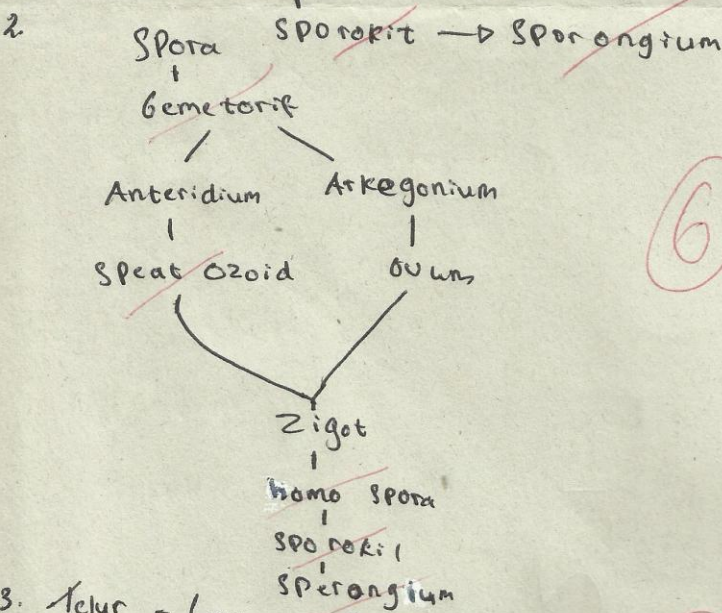 2.
Spora Sporokit → Sporongium
Gemetorif
Anteridium Arkegonium
Speatozoid Ovum
Zigot
homo spora
sporokil
sperongium
3. Telur
6